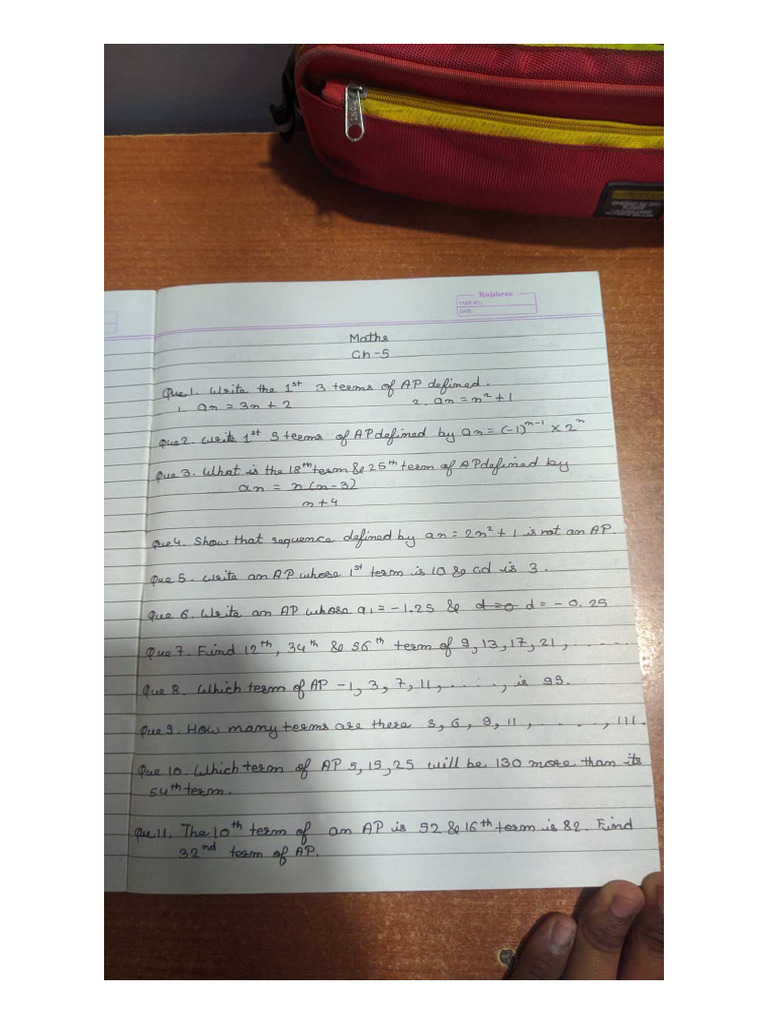 Rajshree
PAGE NO.:
DATE:
Maths
Ch-5
Que 1. Write the 1st 3 terms of AP defined.
1. an = 3n + 2 2. an = n² + 1
Que 2. Write 1st 5 terms of AP defined by an = (-1)ⁿ⁻¹ × 2ⁿ
Que 3. What is the 18th term & 25th term of AP defined by
an = n(n-3)
n+4
Que 4. Show that sequence defined by an = 2n² + 1 is not an AP.
Que 5. Write an AP whose 1st term is 10 & cd is 3.
Que 6. Write an AP whose a1 = -1.25 & d=0 d = -0.25
Que 7. Find 12th, 34th & 56th term of 9, 13, 17, 21, ......
Que 8. Which term of AP -1, 3, 7, 11, ....., is 99.
Que 9. How many terms are there 3, 6, 9, 11, ....., 111.
Que 10. Which term of AP 5, 15, 25 will be 130 more than its
54th term.
Que 11. The 10th term of an AP is 52 & 16th term is 82. Find
32nd term of AP.